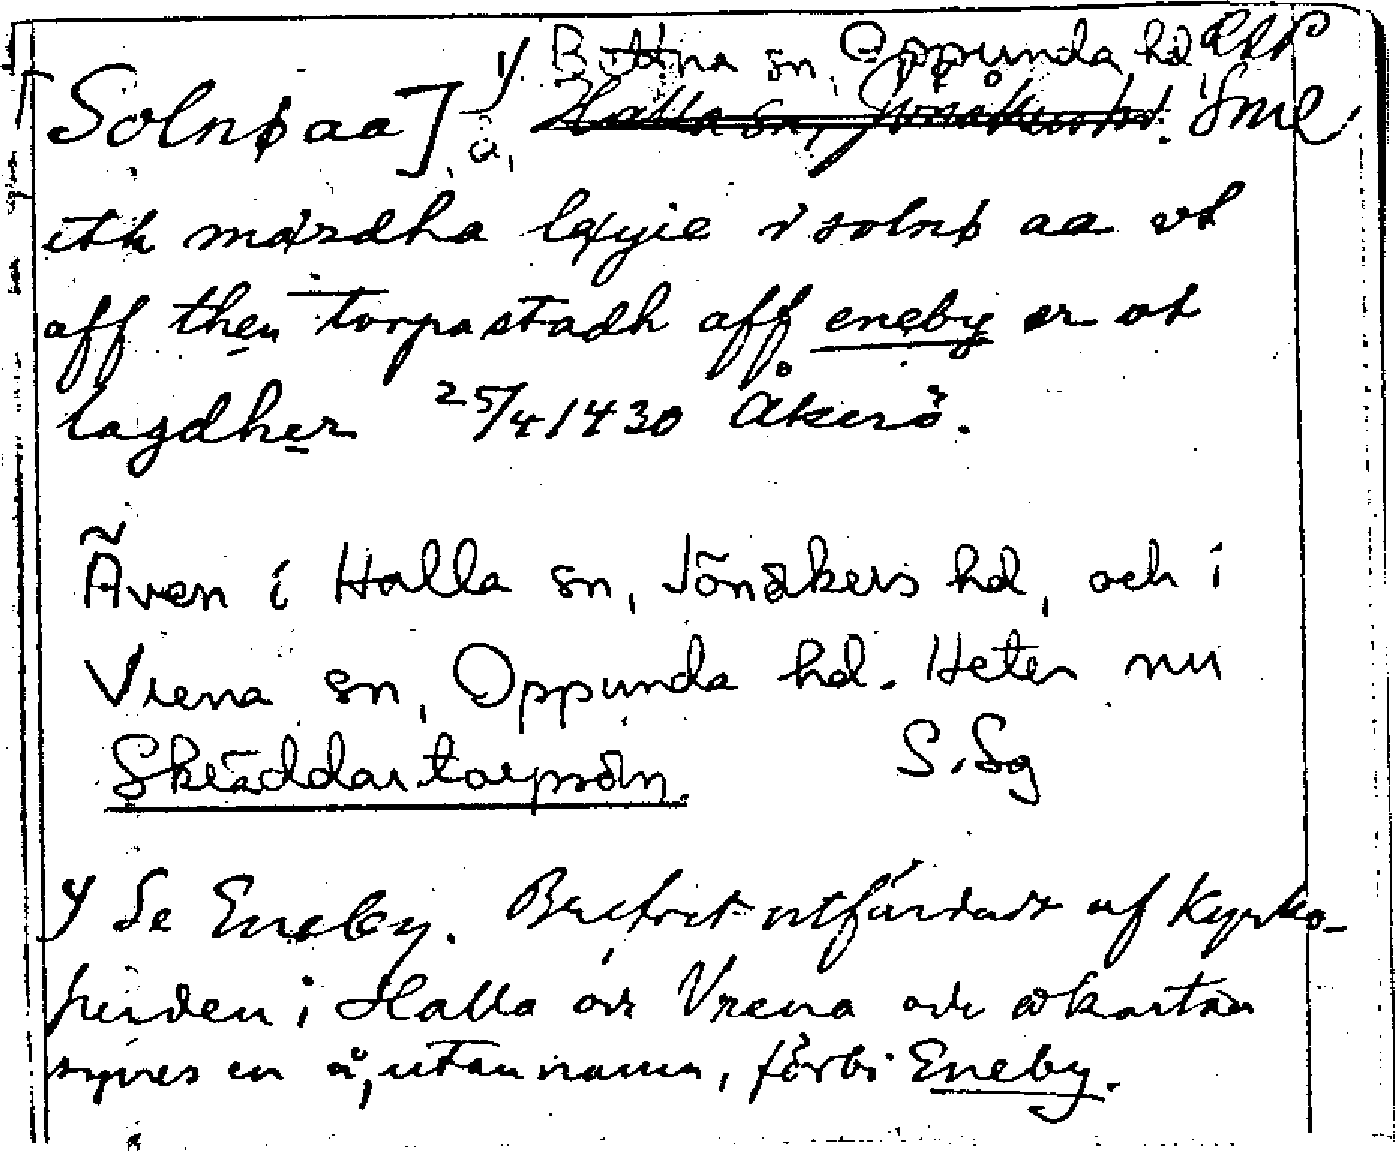 1) Bettna sn, Oppunda hd,
[Solnþ aa] å, Halla sn, Jönåkers hd. Sml
ith mårdha læyie i solnþ aa vt
aff then torpastadh aff eneby er vt
lagdher 25/4 1430 Åkerö.
Även i Halla sn, Jönåkers hd, och i
Vrena sn, Oppunda hd. Heter nu
Skräddartorpsån. S.Sg
1) Se Eneby. Brefvet utfärdadt af Kyrko-
herden i Halla och Vrena och på kartan
synes en å, utan namn, förbi Eneby.